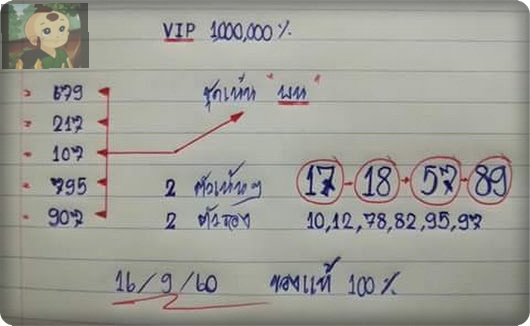 VIP 1000,000 %
679
217
107
795
907
ชุดเน้น "บน"
2 ตัวเน้นๆ 17-18-57-89
2 ตัวรอง 10,12,78,82,95,97
16/9/60 ของแท้ 100 %